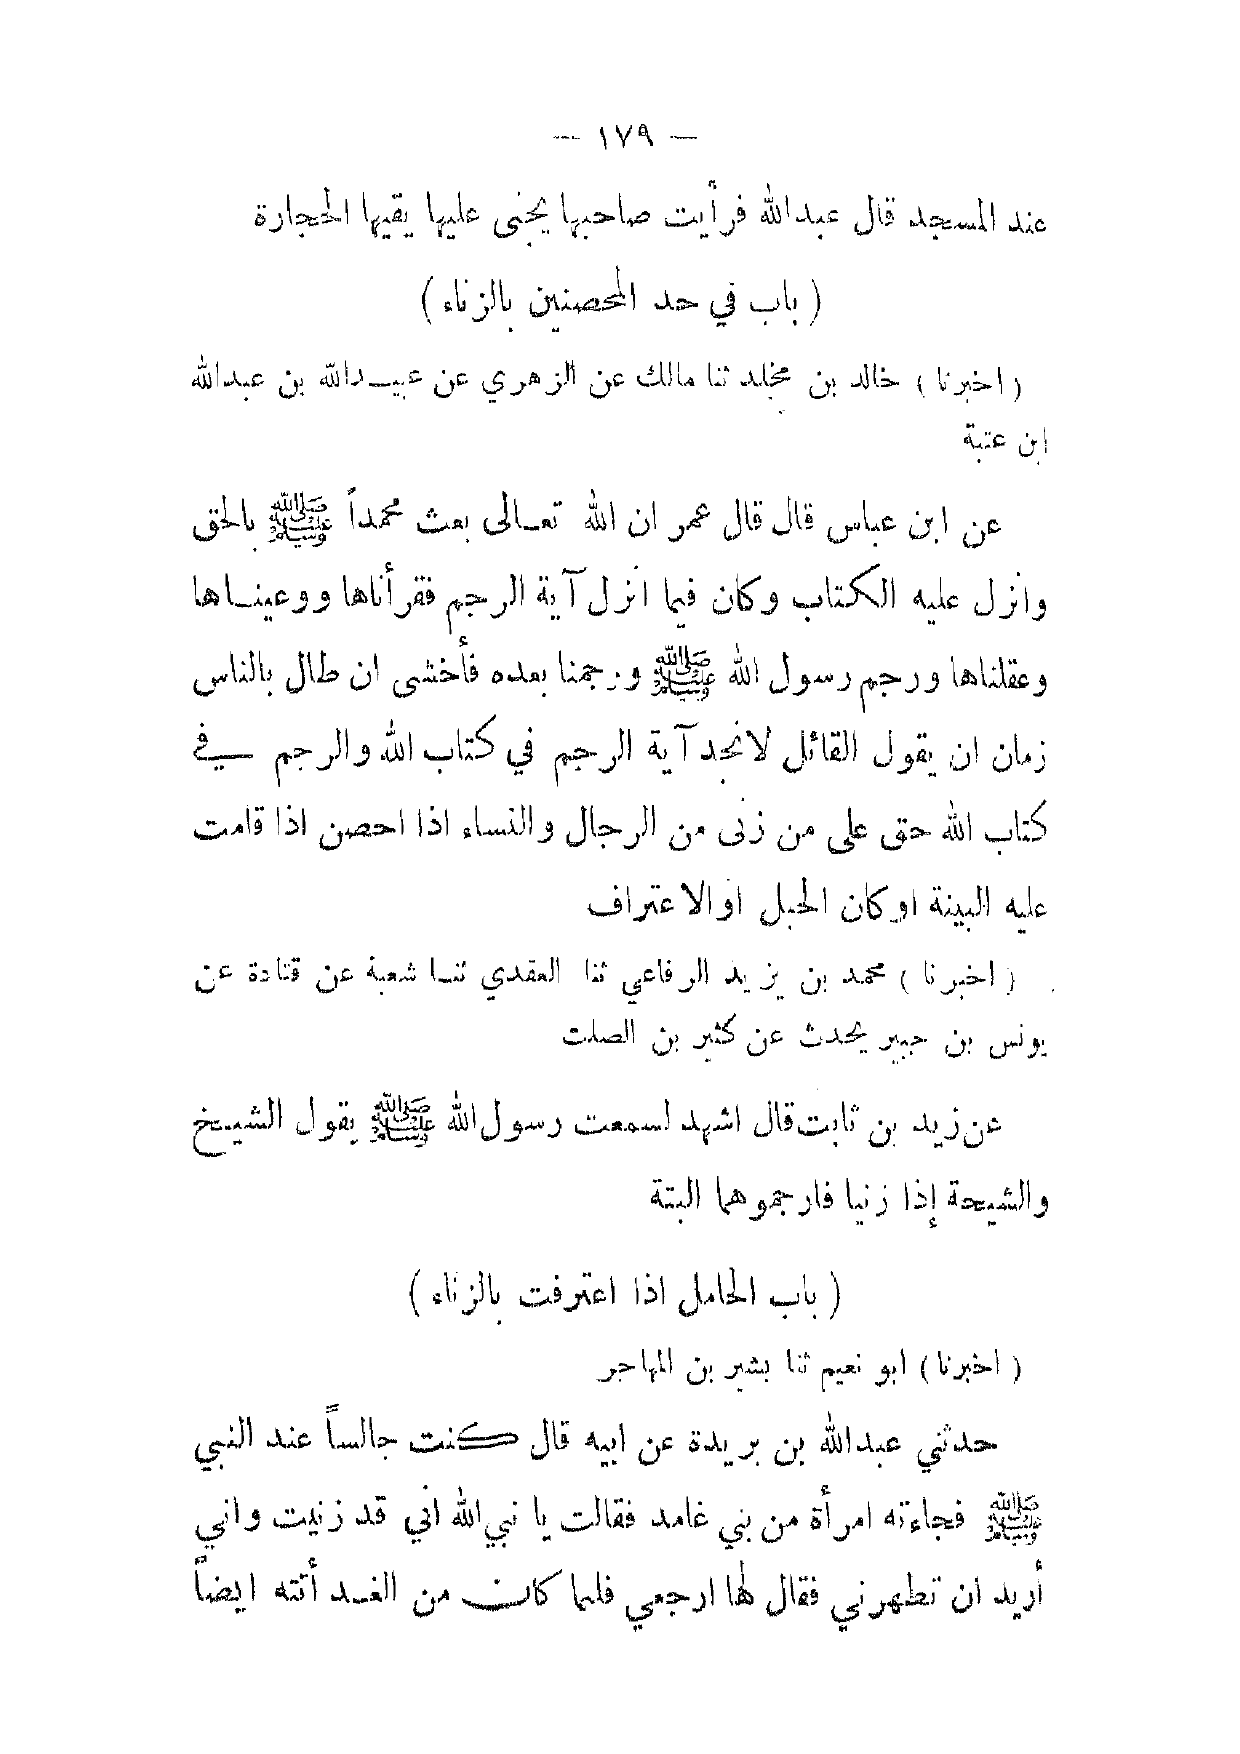 — ١٧٩ —
عند المسجد قال عبدالله فرأيت صاحبها يجنى عليها يقيها الحجارة
( باب في حد المحصنين بالزناء )
( اخبرنا ) خالد بن مخلد ثنا مالك عن الزهري عن عبيدالله بن عبدالله
ابن عتبة
عن ابن عباس قال قال عمر ان الله تعالى بعث محمداً ﷺ بالحق
وانزل عليه الكتاب وكان فيما انزل آية الرجم فقرأناها ووعيناها
وعقلناها ورجم رسول الله ﷺ ورجمنا بعده فأخشى ان طال بالناس
زمان ان يقول القائل لانجد آية الرجم في كتاب الله والرجم في
كتاب الله حق على من زنى من الرجال والنساء اذا احصن اذا قامت
عليه البينة اوكان الحبل او الاعتراف
( اخبرنا ) محمد بن يزيد الرفاعي ثنا العقدي ثنا شعبة عن قتادة عن
يونس بن جبير يحدث عن كثير بن الصلت
عن زيد بن ثابت قال اشهد لسمعت رسول الله ﷺ يقول الشيخ
والشيحة إذا زنيا فارجموهما البتة
( باب الحامل اذا اعترفت بالزناء )
( اخبرنا ) ابو نعيم ثنا بشير بن المهاجر
حدثني عبدالله بن بريدة عن ابيه قال كنت جالساً عند النبي
ﷺ فجاءته امرأة من بني غامد فقالت يا نبي الله اني قد زنيت واني
أريد ان تطهرني فقال لها ارجعي فلما كان من الغد أتته ايضاً